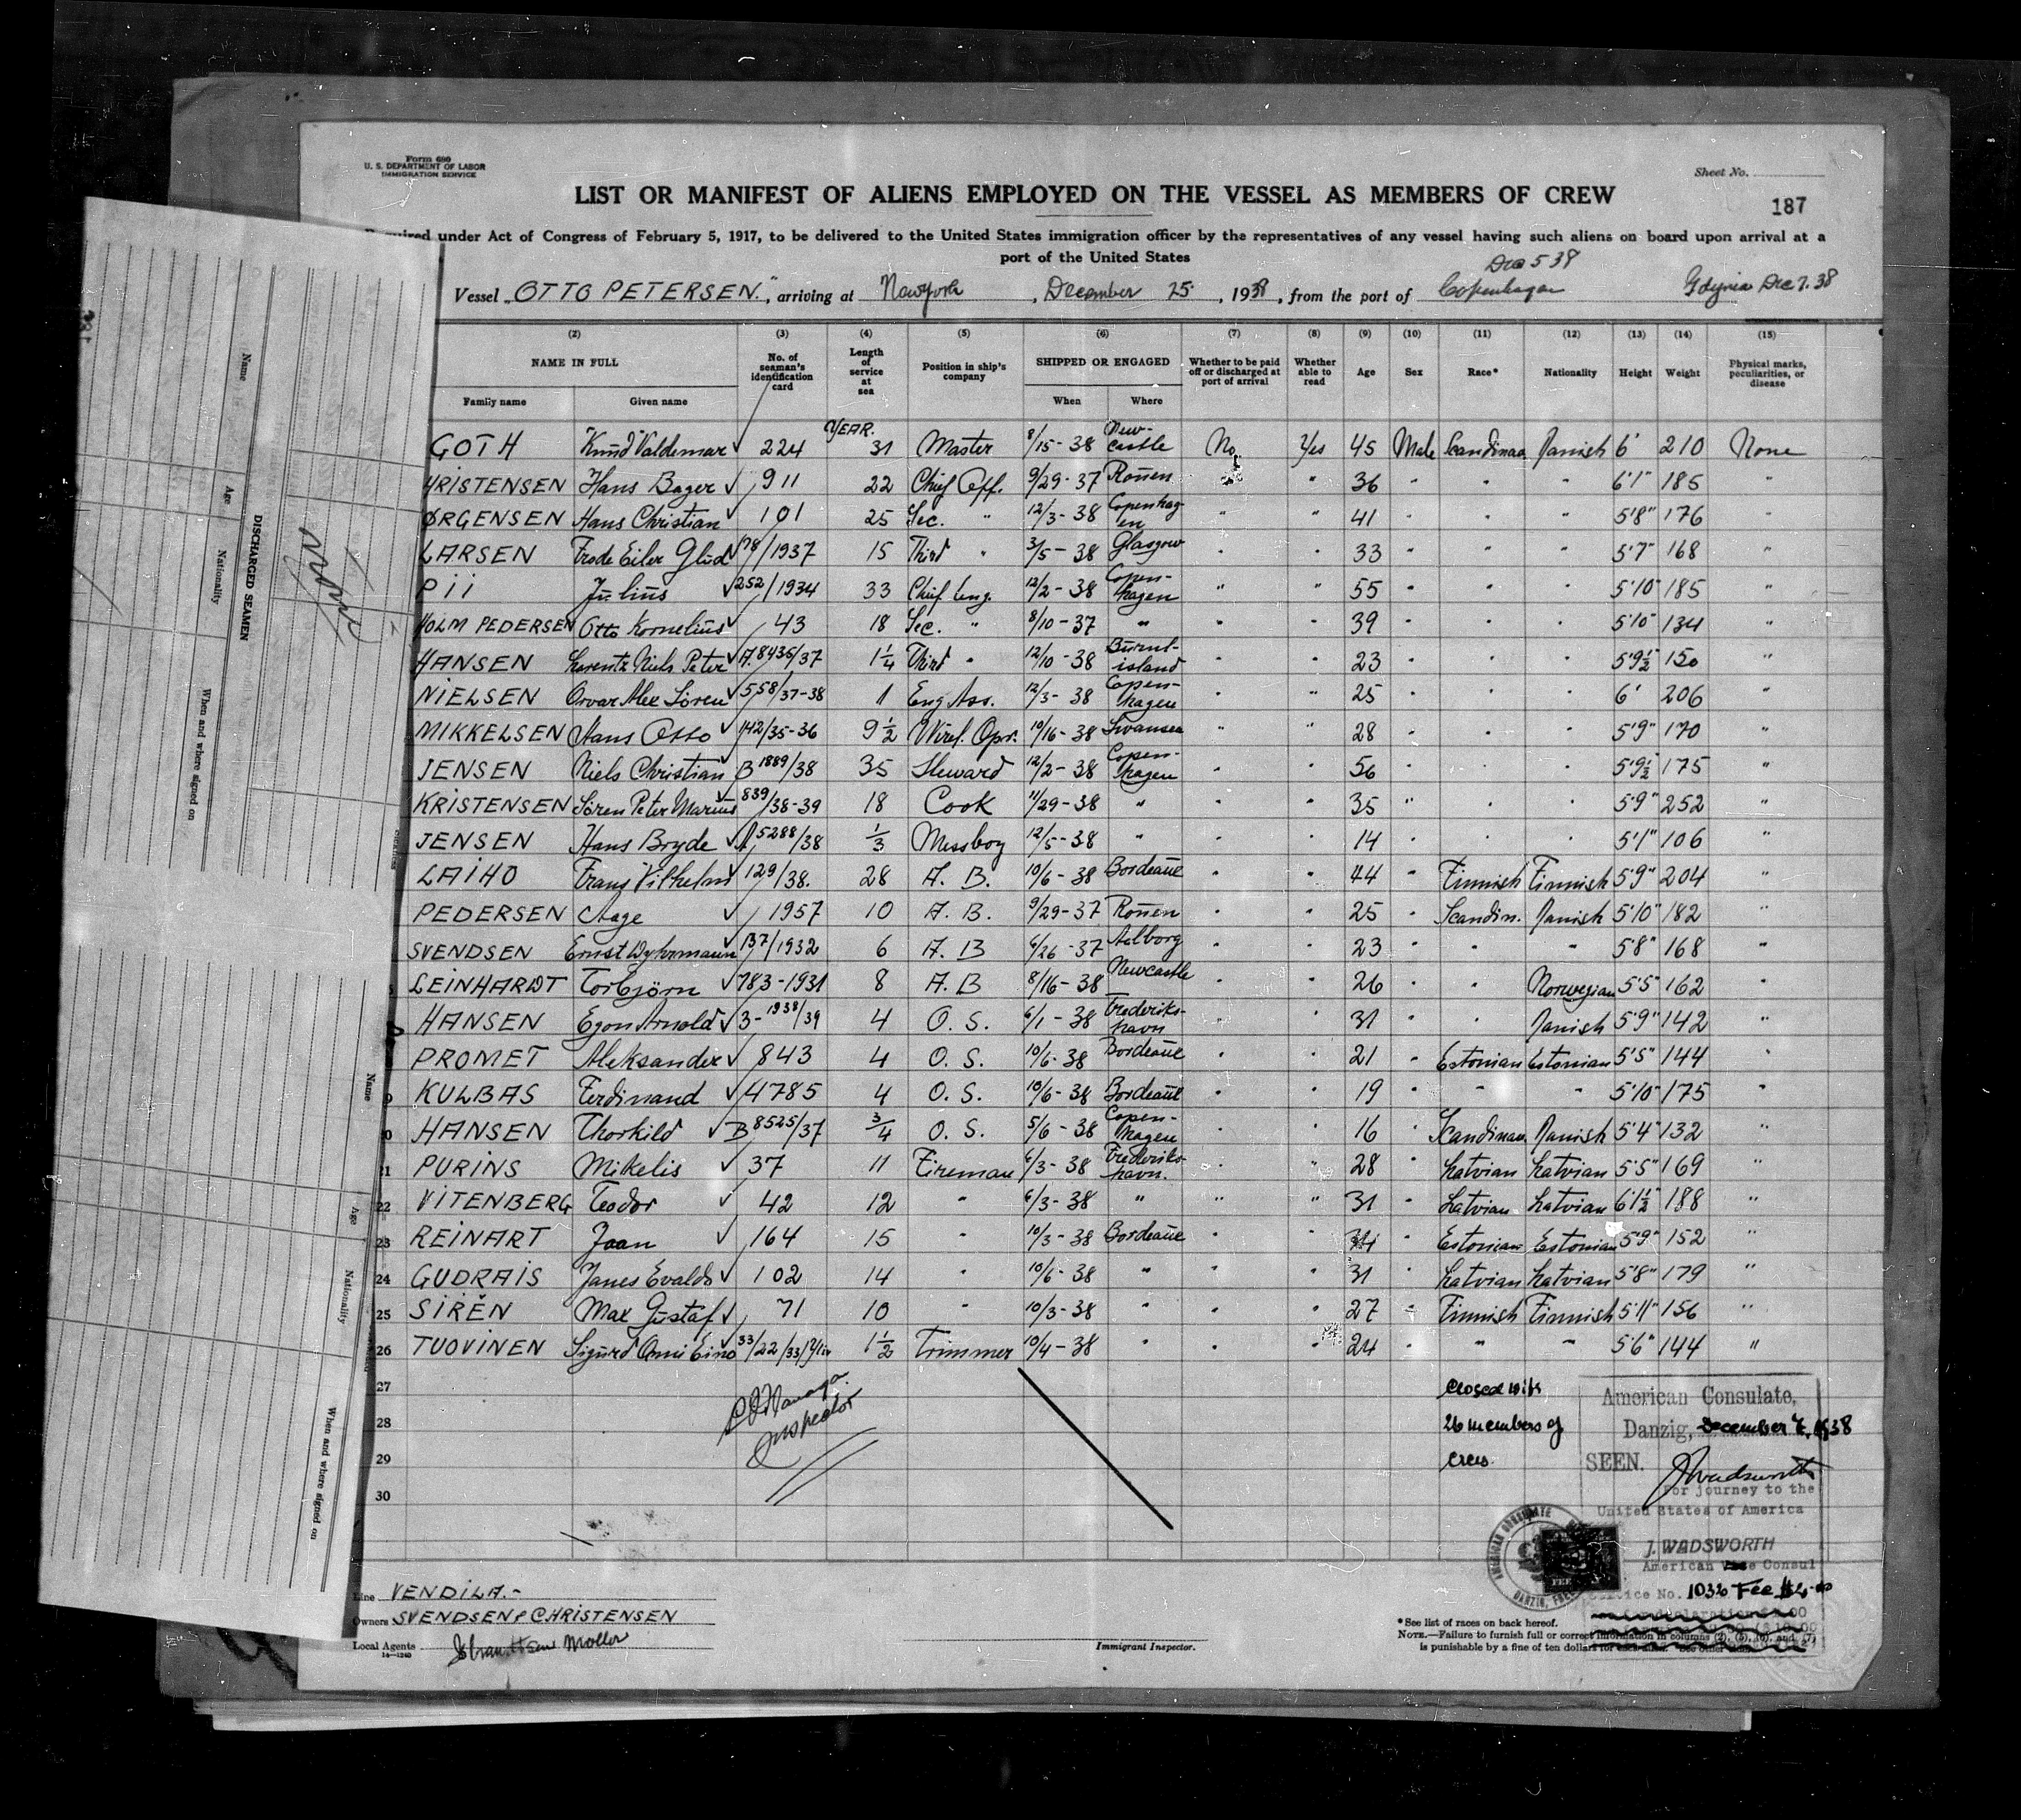 Form 680
U. S. DEPARTMENT OF LABOR
IMMIGRATION SERVICE
Sheet No.
LIST OR MANIFEST OF ALIENS EMPLOYED ON THE VESSEL AS MEMBERS OF CREW
187
Required under Act of Congress of February 5, 1917, to be delivered to the United States immigration officer by the representatives of any vessel having such aliens on board upon arrival at a
port of the United States
Dec 5 38
Vessel "OTTO PETERSEN.", arriving at New York, December 25, 1938, from the port of Copenhagen Gdynia Dec 7. 38
(2) (3) (4) (5) (6) (7) (8) (9) (10) (11) (12) (13) (14) (15)
NAME IN FULL No. of seaman's identification card Length of service at sea Position in ship's company SHIPPED OR ENGAGED Whether to be paid off or discharged at port of arrival Whether able to read Age Sex Race* Nationality Height Weight Physical marks, peculiarities, or disease
Family name Given name When Where
YEAR.
GOTH "Knud" Valdemar 224 31 Master 8/15-38 New-castle No Yes 45 Male Scandinav Danish 6' 210 None
HRISTENSEN Hans Bager 911 22 Chief Off. 9/29-37 Rouen " 36 " " " 6'1" 185 "
ØRGENSEN Hans Christian 101 25 Sec. " 12/3-38 Copenhagen " " 41 " " " 5'8" 176 "
LARSEN Frode Eiler Glud 78/1937 15 Third " 3/5-38 Glasgow " " 33 " " " 5'7" 168 "
Pii Julius 252/1934 33 Chief Eng. 12/2-38 Copen-hagen " " 55 " " " 5'10" 185 "
HOLM PEDERSEN Otto Kornelius 43 18 Sec. " 8/10-37 " " " 39 " " " 5'10" 134 "
HANSEN Lorentz Niels Peter A.8436/37 1 1/4 Third " 12/10-38 Burnt-island " " 23 " " " 5'9 1/2 150 "
NIELSEN Orvar Alex Sören 558/37-38 1 Eng Ass. 12/3-38 Copen-hagen " " 25 " " " 6' 206 "
MIKKELSEN Hans Otto 142/35-36 9 1/2 Wirel. Opr. 10/16-38 Swansea " " 28 " " " 5'9" 170 "
JENSEN Niels Christian B 1889/38 35 Steward 12/2-38 Copen-hagen " " 56 " " " 5'9 1/2 175 "
KRISTENSEN Sören Peter Marius 839/38-39 18 Cook 11/29-38 " " " 35 " " " 5'9" 252 "
JENSEN Hans Bryde A 5288/38 1/3 Messboy 12/5-38 " " " 14 " " " 5'1" 106 "
LAIHO Frans Vilhelm 129/38. 28 A. B. 10/6-38 Bordeaux " " 44 " Finnish Finnish 5'9" 204 "
PEDERSEN Aage 1957 10 A. B. 9/29-37 Rouen " " 25 " Scandin. Danish 5'10" 182 "
SVENDSEN Ernst 137/1932 6 A. B 6/26-37 Aalborg " " 23 " " " 5'8" 168 "
LEINHARDT Torbjörn 783-1931 8 A. B 8/16-38 Newcastle " " 26 " " Norwegian 5'5" 162 "
HANSEN Egon Arnold 3-1938/39 4 O. S. 6/1-38 Frederiks-havn " " 31 " " Danish 5'9" 142 "
PROMET Aleksander 843 4 O. S. 10/6-38 Bordeaux " " 21 " Estonian Estonian 5'5" 144 "
KULBAS Ferdinand 4785 4 O. S. 10/6-38 Bordeaux " " 19 " " " 5'10" 175 "
HANSEN Thorkild B 8525/37 3/4 O. S. 5/6-38 Copen-hagen " " 16 " Scandinav. Danish 5'4" 132 "
21 PURINS Mikelis 37 11 Fireman 6/3-38 Frederiks-havn. " " 28 " Latvian Latvian 5'5" 169 "
22 VITENBERG Teodor 42 12 " 6/3-38 " " " 31 " Latvian Latvian 6'1 1/2" 188 "
23 REINART Jaan 164 15 " 10/3-38 Bordeaux " " " Estonian Estonian 5'9" 152 "
24 GUDRAIS Janes Evalds 102 14 " 10/6-38 " " " 31 " Latvian Latvian 5'8" 179 "
25 SIRÉN Max Gustaf 71 10 " 10/3-38 " " " 27 " Finnish Finnish 5'11" 156 "
26 TUOVINEN Sigurd Onni Eino 33/22/33 1 1/2 Trimmer 10/4-38 " " " 24 " " " 5'6" 144 "
27
28
29
30
Inspector
Closed with
26 members of
crew.
American Consulate,
Danzig, December 7, 1938
SEEN.
JWadsworth
For journey to the
United States of America
J. WADSWORTH
American Consul
Service No. 1032 Fee $2.00
AMERICAN CONSULATE
DANZIG, FREE
Line VENDILA.-
Owners SVENDSEN & CHRISTENSEN
Local Agents
14-1240
Immigrant Inspector.
*See list of races on back hereof.
NOTE.—Failure to furnish full or correct information in columns (2), (5), (6), and (7)
is punishable by a fine of ten dollars for each alien.
DISCHARGED SEAMEN
Name
Age
Nationality
When and where signed on
Name
Age
Nationality
When and where signed on